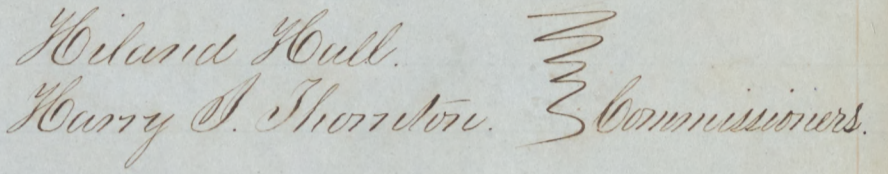 Hiland Hall.
Harry I. Thornton. Commissioners.